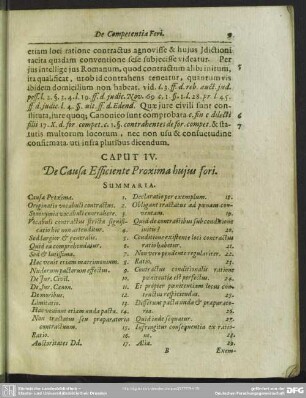 De Competentia Fori. 9
etiam loci ratione contractus agnovisse & hujus Jdictioni
tacita quadam conventione sese subjecisse videatur. Per
jus intellige jus Romanum, quod contractum alibi initum,
ita qualificat, ut ob id contrahens teneatur, quantumvis
ibidem domicilium non habeat. vid. l. 3. ff. d. reb. auct. jud.
poss. l. 2. §. 3. 4. l. 19. ff. d. judic. Nov. 69 c. 1. §. 1. l. 28. pr. l. 45.
ff. d. judic. l. 4. §. ult. ff. d. Edend. Quæ jure civili sunt con-
stituta, jure quoq; Canonico sunt comprobata c. fin &
filii 17. X. d. for. compet. c. 1. §. contrahentes de for. compet. & sta-
tutis multorum locorum, nec non usu & consuetudine
confirmata, uti infra pluribus dicendum.
5
6
7
CAPUT IV.
De Causa Efficiente Proxima hujus fori.
SUMMARIA.
Causa Proxima. 1.
Originatio vocabuli contractus. 2.
Synonyma vocabuli contrahere. 3.
Vocabuli contractus stricta signifi-
catio hic non attenditur. 4.
Sed largior & generalis. 5.
Quid ea comprehendatur. 6.
Sed & latissima. 7.
Huc venit etiam matrimonium. 8.
Nudorum pactorum effectus. 9.
De Jur. Civil. 10.
De Jur. Canon. 11.
De moribus. 12.
Limitatio. 13.
Huc veniunt etiam nuda pacta. 14.
Non tractatus seu præparatoria
contractuum. 15.
Ratio. 16.
Auctoritates Dd. 17.
Declaratio per exemplum. 18.
Obligant tractatus ad pœnam con-
ventam. 19.
Quid de contractibus sub conditione
initis? 20.
Conditione existente loci contractus
ratio habetur. 21.
Non vero pendente regulariter. 22.
Ratio. 23.
Contractus conditionalis ratione
pœnitentiæ est perfectus. 24.
Et propter pœnitentiam locus con-
tractus respiciendus. 25.
Different pacta nuda & præparato-
ria. 26.
Quid inde sequatur. 27.
Infringitur consequentia ex ratio-
ne. 28.
Alia. 29.
B Exem-